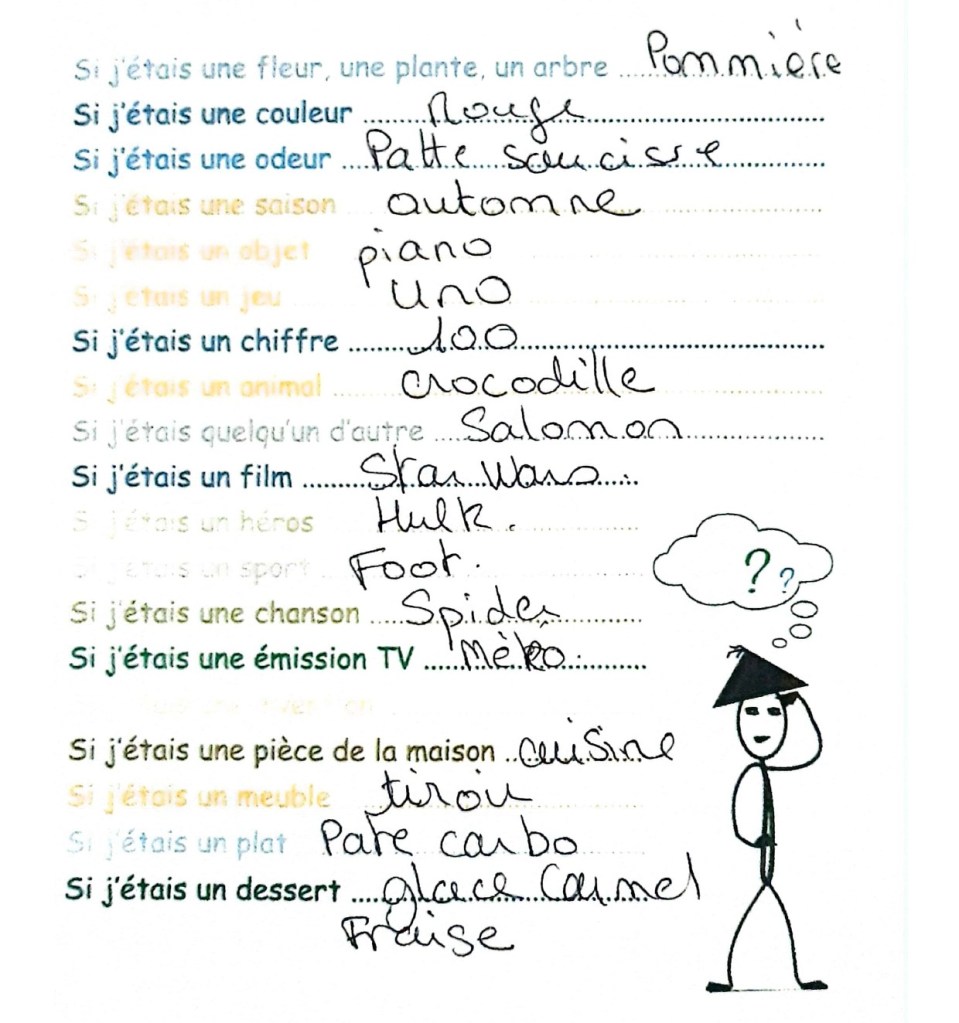 Si j'étais une fleur, une plante, un arbre ... Pommière
Si j'étais une couleur ... Rouge
Si j'étais une odeur ... Patte saucisse
Si j'étais une saison automne
Si j'étais un objet piano
Si j'étais un jeu uno
Si j'étais un chiffre ... 100
Si j'étais un animal ... crocodille
Si j'étais quelqu'un d'autre ... Salomon
Si j'étais un film ... Star Wars
Si j'étais un héros Hulk.
Si j'étais un sport ... Foot.
Si j'étais une chanson ... Spider
Si j'étais une émission TV ... Météo.
? ?
Si j'étais une pièce de la maison ... cuisine
Si j'étais un meuble tiroir
Si j'étais un plat Pate carbo
Si j'étais un dessert ... glace Caramel
Fraise